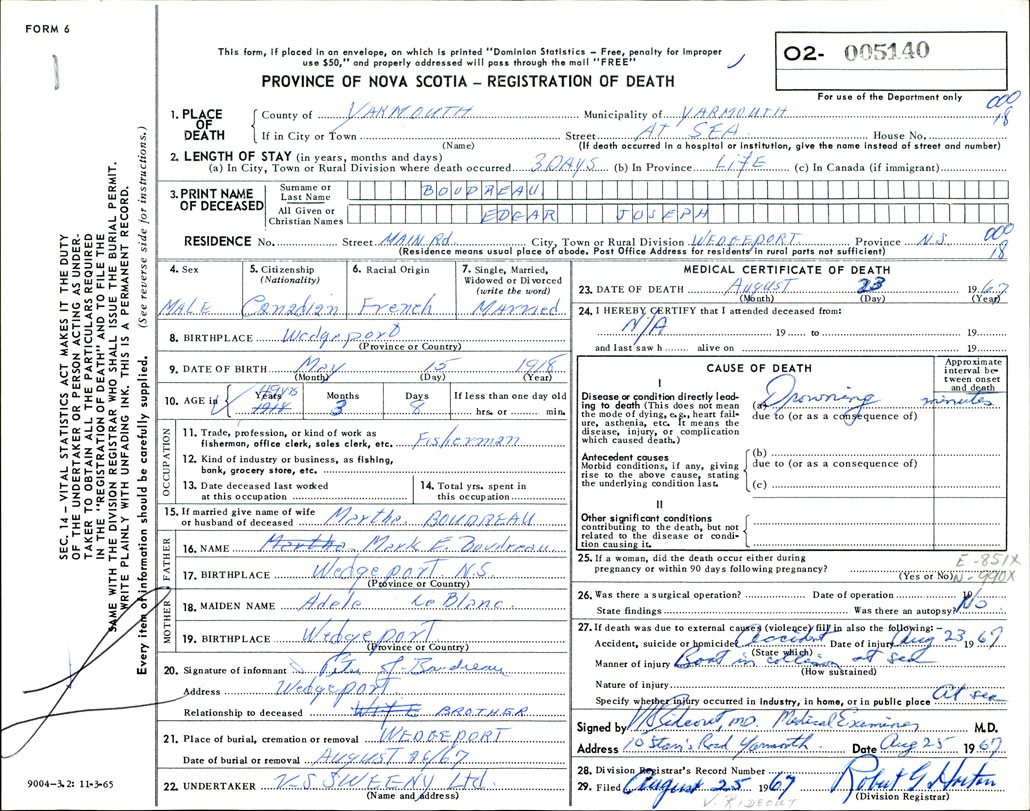 FORM 6
This form, if placed in an envelope, on which is printed "Dominion Statistics – Free, penalty for improper
use $50," and properly addressed will pass through the mail "FREE"
O2- 005140
PROVINCE OF NOVA SCOTIA – REGISTRATION OF DEATH
For use of the Department only
000
18
1. PLACE OF DEATH
County of YARMOUTH Municipality of YARMOUTH
If in City or Town Street AT SEA House No.
(Name) (If death occurred in a hospital or institution, give the name instead of street and number)
2. LENGTH OF STAY (in years, months and days)
(a) In City, Town or Rural Division where death occurred 3 DAYS (b) In Province LIFE (c) In Canada (if immigrant)
3. PRINT NAME OF DECEASED
Surname or Last Name BOUDREAU
All Given or Christian Names EDGAR JOSEPH
RESIDENCE No. Street MAIN Rd. City, Town or Rural Division WEDGEPORT Province N.S.
000
18
(Residence means usual place of abode. Post Office Address for residents in rural parts not sufficient)
4. Sex MALE
5. Citizenship (Nationality) Canadian
6. Racial Origin French
7. Single, Married, Widowed or Divorced (write the word) Married
8. BIRTHPLACE Wedgeport
(Province or Country)
9. DATE OF BIRTH May 15 1918
(Month) (Day) (Year)
10. AGE in Years 49 yrs 1918 Months 3 Days 8 If less than one day old hrs. or min.
OCCUPATION
11. Trade, profession, or kind of work as
fisherman, office clerk, sales clerk, etc. Fisherman
12. Kind of industry or business, as fishing,
bank, grocery store, etc.
13. Date deceased last worked
at this occupation
14. Total yrs. spent in
this occupation
15. If married give name of wife
or husband of deceased Martha BOUDREAU
FATHER
16. NAME Martha Mark E. Boudreau
17. BIRTHPLACE Wedgeport N.S.
(Province or Country)
MOTHER
18. MAIDEN NAME Adele LeBlanc
19. BIRTHPLACE Wedgeport
(Province or Country)
20. Signature of informant Boudreau
Address Wedgeport
Relationship to deceased WIFE BROTHER
21. Place of burial, cremation or removal WEDGEPORT
Date of burial or removal AUGUST 26/67
22. UNDERTAKER V-S SWEENY Ltd.
(Name and address)
MEDICAL CERTIFICATE OF DEATH
23. DATE OF DEATH August 23 1967
(Month) (Day) (Year)
24. I HEREBY CERTIFY that I attended deceased from:
N/A 19 to 19
and last saw h alive on 19
CAUSE OF DEATH
Approximate interval between onset and death
I
Disease or condition directly leading to death (This does not mean the mode of dying, e.g., heart failure, asthenia, etc. It means the disease, injury, or complication which caused death.)
(a) Drowning minutes
due to (or as a consequence of)
Antecedent causes
Morbid conditions, if any, giving rise to the above cause, stating the underlying condition last.
(b)
due to (or as a consequence of)
(c)
II
Other significant conditions
contributing to the death, but not related to the disease or condition causing it.
25. If a woman, did the death occur either during
pregnancy or within 90 days following pregnancy?
(Yes or No)
E-851X
N-990X
26. Was there a surgical operation? Date of operation 19
State findings Was there an autopsy? No
27. If death was due to external causes (violence) fill in also the following: –
Accident, suicide or homicide Accident Date of injury Aug 23 1967
(State which)
Manner of injury Boat in collision at sea
(How sustained)
Nature of injury
Specify whether injury occurred in Industry, in home, or in public place At sea
Signed by Rideout, MD. Medical Examiner M.D.
Address 10 Road Yarmouth. Date Aug 25 1967
28. Division Registrar's Record Number
29. Filed August 25 1967 Robert G Horton
(Division Registrar)
V. RIDEOUT
SEC. 14 – VITAL STATISTICS ACT MAKES IT THE DUTY
OF THE UNDERTAKER OR PERSON ACTING AS UNDER-
TAKER TO OBTAIN ALL THE PARTICULARS REQUIRED
IN THE "REGISTRATION OF DEATH" AND TO FILE THE
SAME WITH THE DIVISION REGISTRAR WHO SHALL ISSUE THE BURIAL PERMIT.
WRITE PLAINLY WITH UNFADING INK. THIS IS A PERMANENT RECORD.
Every item of information should be carefully supplied. (See reverse side for instructions.)
9004-3.2: 11-3-65